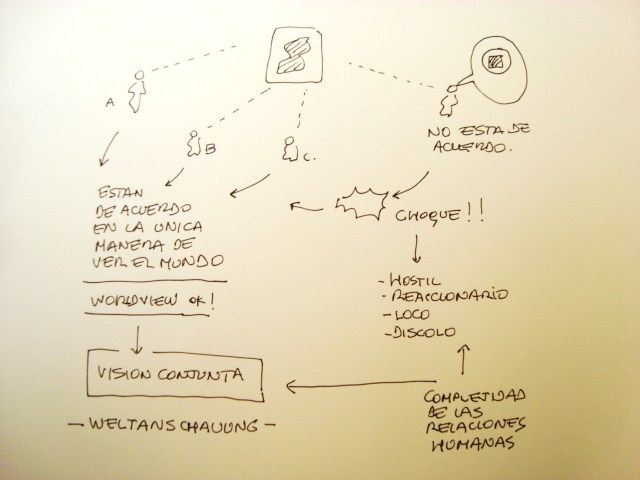 A
B
C.
NO ESTA DE
ACUERDO.
ESTAN
DE ACUERDO
EN LA UNICA
MANERA DE
VER EL MUNDO
WORLDVIEW OK!
VISION CONJUNTA
- WELTANSCHAUUNG -
CHOQUE!!
- HOSTIL
- REACCIONARIO
- LOCO
- DISCOLO
COMPLETIDAD
DE LAS
RELACIONES
HUMANAS